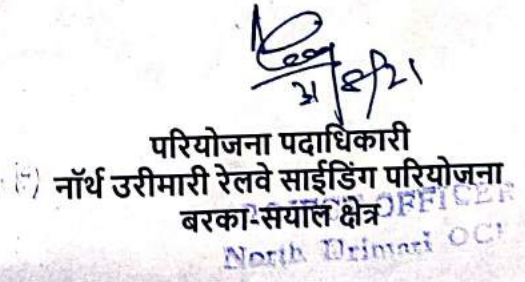 31/8/21
परियोजना पदाधिकारी
नॉर्थ उरीमारी रेलवे साईडिंग परियोजना
बरका-सयाल क्षेत्र
OFFICER
North Urimari OCP